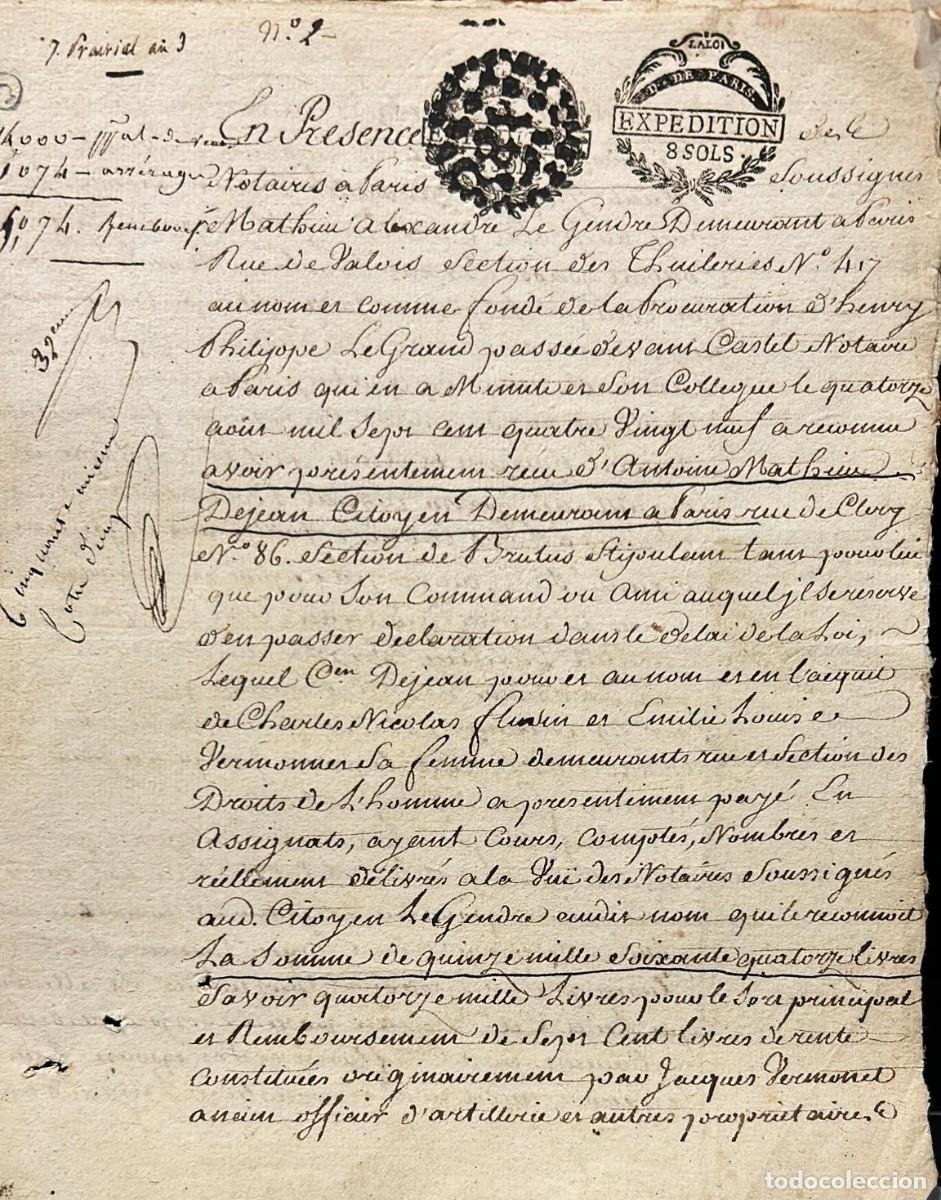 7. Prairial an 3
N.º 2
LA LOI
D.T DE PARIS.
EXPEDITION
8 SOLS
14000 - p.pal - de
1074 - arrérages
15,074. Rembours.t
En Presence des
Notaires à Paris Soussignés
Mathieu Alexandre Le Gendre Demeurant a Paris
Rue de Valois Section des Thuileries N.º 417
au nom et comme fondé de la Procuration d'henry
Philippe Le Grand passée devant Castel Notaire
a Paris qui en a Minute et son Collegue le quatorze
août mil Sept cent quatre Vingt neuf a reconnu
avoir présentement reçu d'Antoine Mathieu
Dejean Citoyen Demeurant a Paris rue de Clery
N.º 86. Section de Brutus Stipulant tant pour lui
que pour Son Command ou Ami auquel jl se réserve
d'en passer declaration dans le delai de la Loi,
Lequel C.en Dejean pour et au nom et en l'acquit
de Charles Nicolas et Emilie Louise
Vermonnet Sa femme demeurants rue et Section des
Droits de L'homme a présentement payé En
Assignats, ayant Cours, comptés, Nombrés et
réellement délivrés a la Vuë des Notaires Soussignés
aud. Citoyen Le Gendre audit nom qui le reconnoit
La Somme de quinze mille Soixante quatorze livres
Savoir quatorze mille Livres pour le Sort principal
et Remboursement de Sept Cent livres de rente
constituées originairement par Jacques Vermonet
ancien officier d'artillerie et autres proprietaires
32eme
Cinquante neuvieme
Cotte d'inv